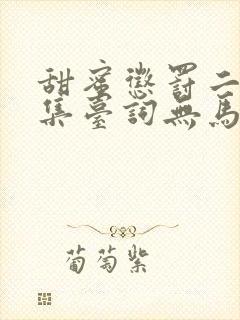 甜蜜懲罰二
集臺詞無馬
葡萄紫